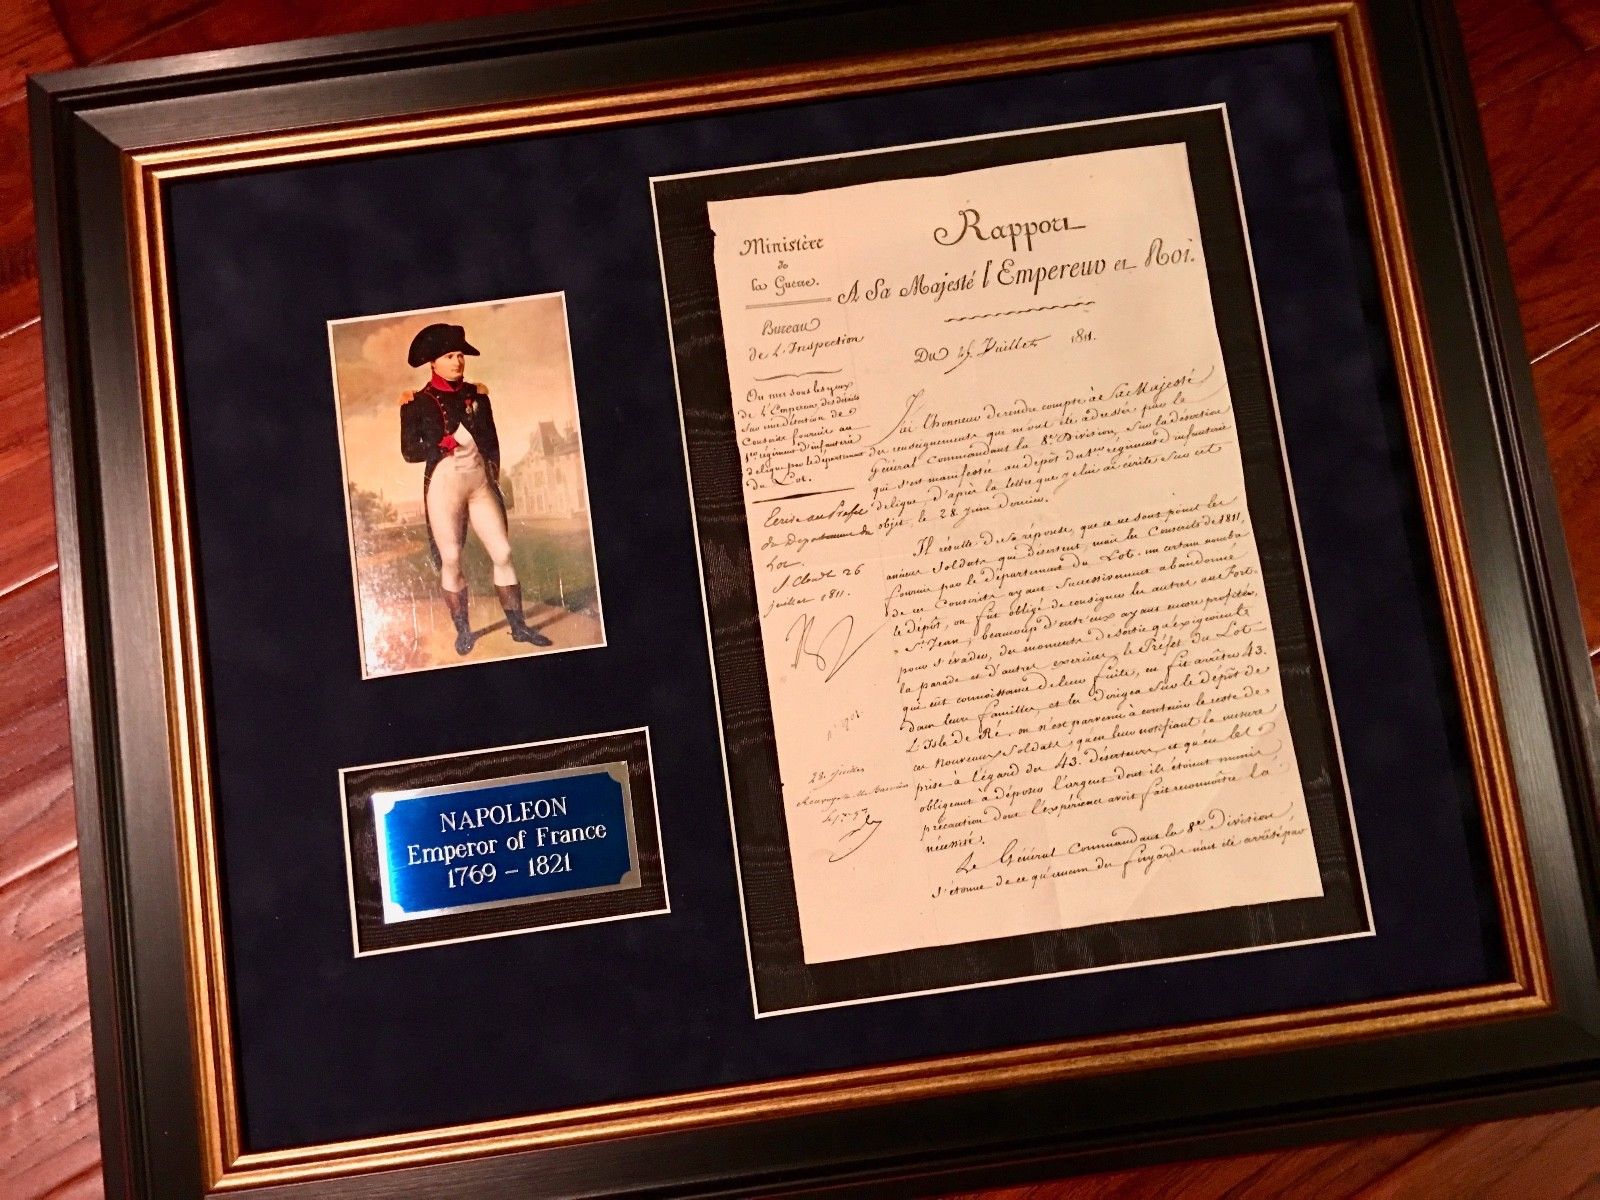 Ministère
de
la Guerre.
Bureau
de L'Inspection
On met sous les yeux
de L'Empereur des détails
Sur une désertion de
Conscrits fournis au
1er régiment d'infanterie
de ligne par le département
du Lot.
Ecrire au Préfet
du Département du
Lot.
St Cloud 26
juillet 1811.
28. juillet
Rapport
A Sa Majesté l'Empereur et Roi.
Du Juillet 1811.
J'ai l'honneur de rendre compte à Sa Majesté
des renseignements que m'ont été adressés par le
Général Commandant la 8e Division, Sur la désertion
qui s'est manifestée au dépôt du 1er régiment d'infanterie
de ligne, d'après la lettre que je lui ai écrite Sur cet
objet, le 28 Juin dernier.
Il résulte de sa réponse, que ce ne sont point les
anciens Soldats qui désertent, mais les Conscrits de 1811,
fournis par le département du Lot. un certain nombre
de ces Conscrits ayant Successivement abandonné
le dépôt, on fut obligé de consigner les autres au Fort
St Jean; beaucoup d'entr'eux ayant encore profité,
pour s'évader, des moments de sortie qu'exigeoient
la parade et d'autres exercices, le Préfet du Lot
qui eut connoissance de leur fuite, en fit arrêter 43.
dans leurs familles, et les dirigea Sur le dépôt de
L'Isle de Ré. on n'est parvenu à contenir le reste de
ces nouveaux Soldats, qu'en leur notifiant la mesure
prise à l'égard des 43. déserteurs, et qu'en les
obligeant à déposer l'argent dont ils étoient munis,
précaution dont l'expérience avoit fait reconnoître la
nécessité.
Le Général Commandant la 8e Division
s'étonne de ce qu'aucun des fuyards n'ait été arrêté par
NAPOLEON
Emperor of France
1769 – 1821